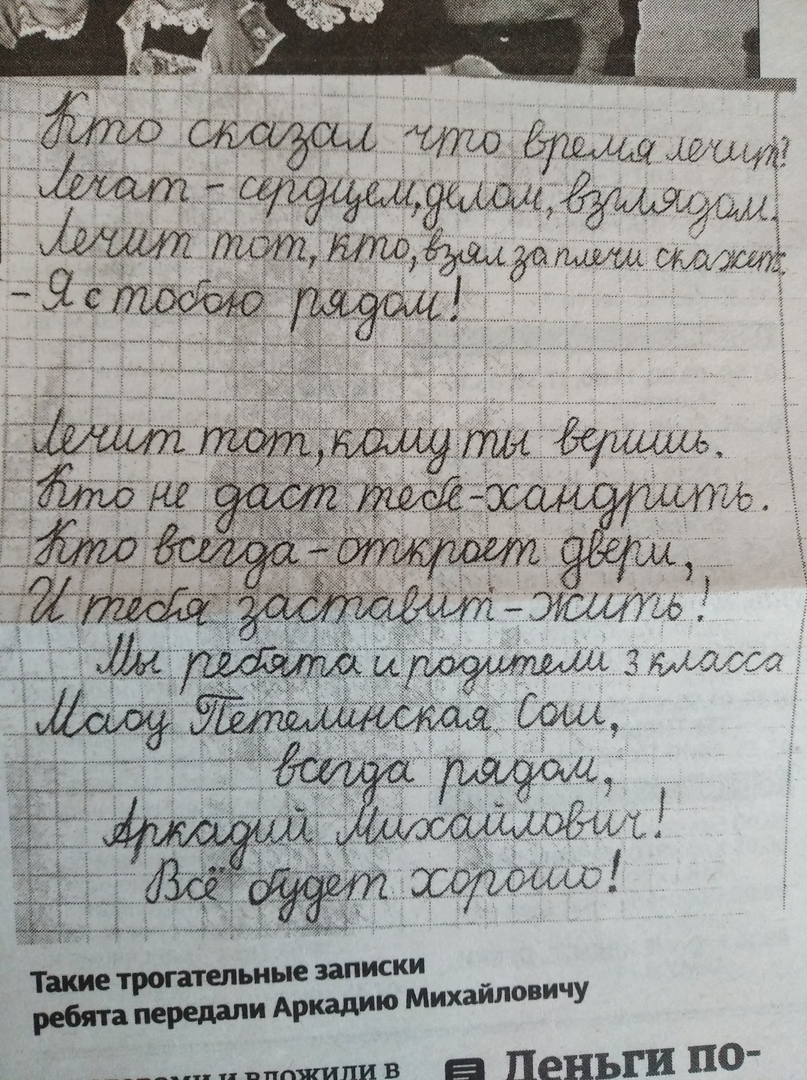 Кто сказал что время лечит?
Лечат - сердцем, делом, взглядом.
Лечит тот, кто, взял за плечи скажет:
- Я с тобою рядом!
Лечит тот, кому ты веришь.
Кто не даст тебе-хандрить.
Кто всегда-откроет двери,
И тебя заставит-жить!
Мы ребята и родители 3 класса
Маоу Петелинская Сош,
всегда рядом,
Аркадий Михайлович!
Всё будет хорошо!
Такие трогательные записки
ребята передали Аркадию Михайловичу
и вложили в
Деньги по-